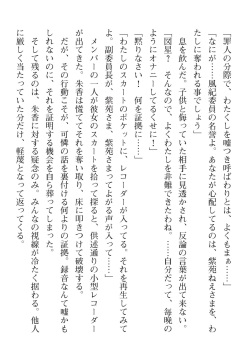 罪人の分際で、わたくしを嘘つき呼ばわりとは、よくもまぁ……」
「なにが……風紀委員の名誉よ。あなたが心配してるのは、紫苑ねえさまを、わたしに奪われる事でしょう」
息を飲んだ。子供と侮っていた相手に見透かされ、反論の言葉が出て来ない。
「図星？　そんなので、よくわたしを非難できたわね。……自分だって、毎晩のようにオナニーしてるくせに！」
「黙りなさい！　何を証拠に……」
「わたしのスカートのポケットに、レコーダーが入ってる。それを再生してみてよ。副委員長が、紫苑さま、紫苑さまってよがる声が入ってるから」
メンバーの一人が彼女のスカートを拾って探ると、供述通りの小型レコーダーが出てきた。朱香は慌ててそれを奪い取り、床に叩きつけて破壊する。
だが、その行動こそが、可憐の話を裏付ける何よりの証拠。録音なんて嘘かもしれないのに、それを証明する機会を自ら葬ってしまった。
そして残るのは、朱香に対する疑念のみ。みんなの視線が冷たく据わる。他人に厳しく当たっていた分だけ、軽蔑となって返ってくる。